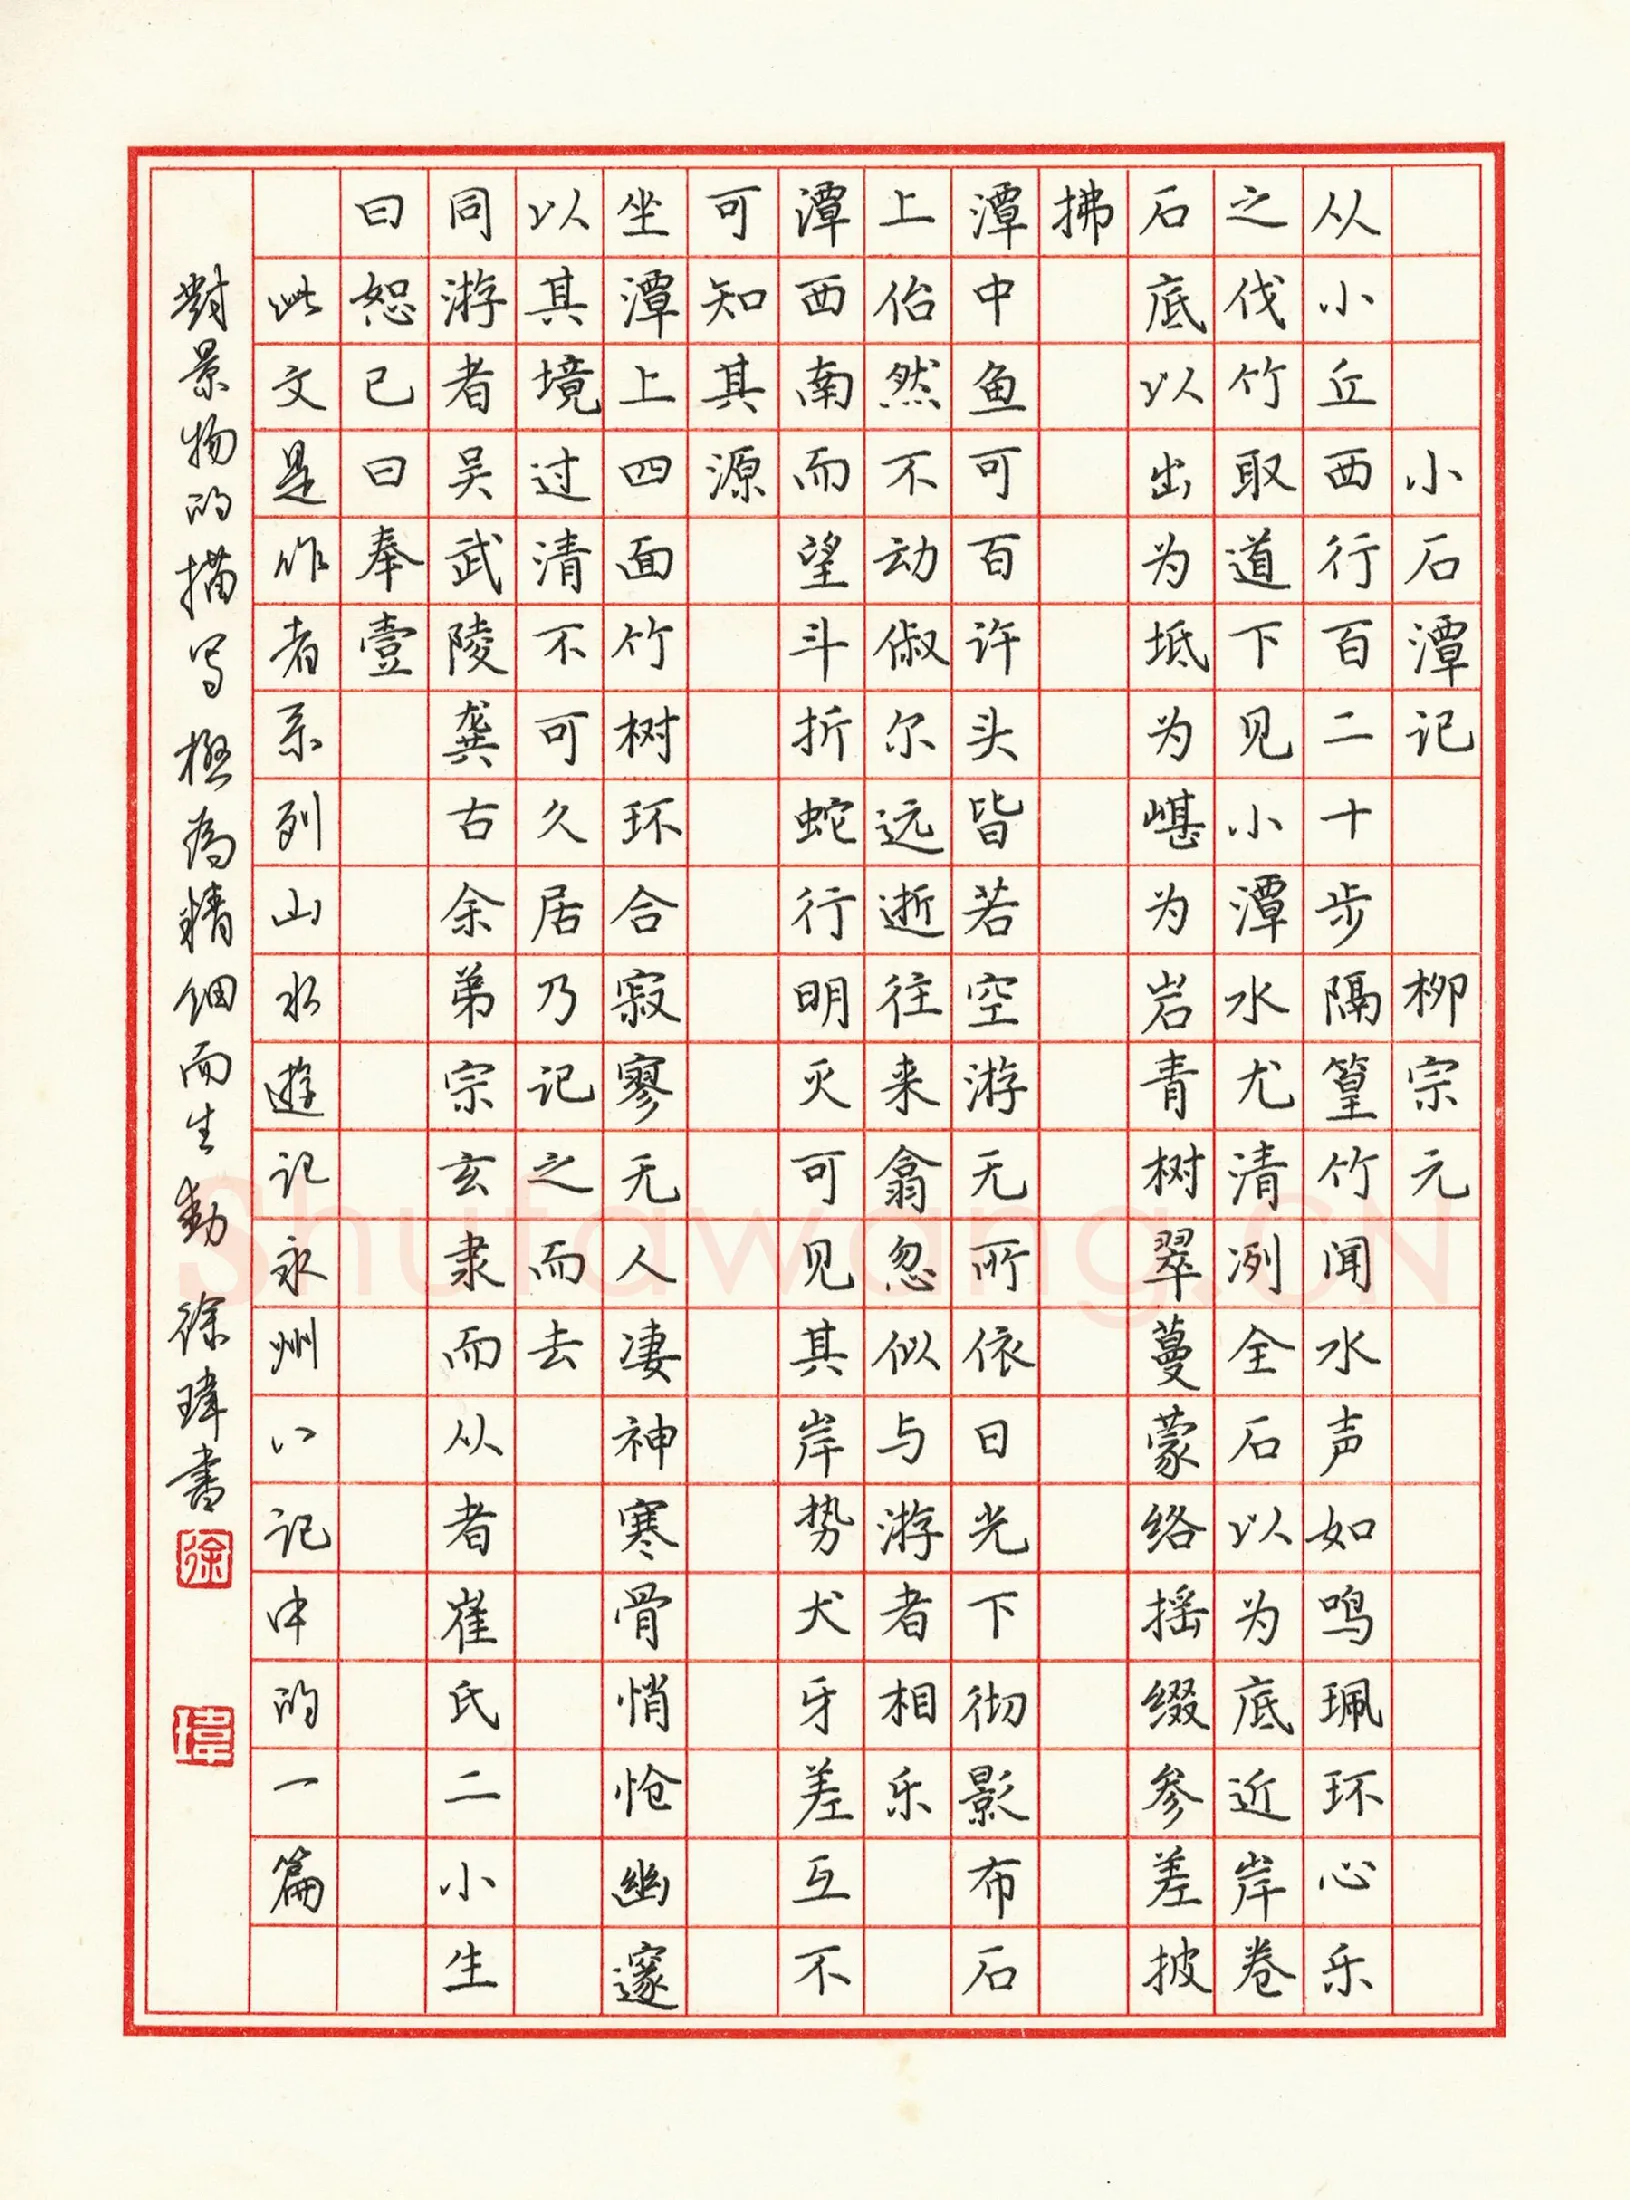 小石潭记 柳宗元
从小丘西行百二十步隔篁竹闻水声如鸣珮环心乐
之伐竹取道下见小潭水尤清冽全石以为底近岸卷
石底以出为坻为嵁为岩青树翠蔓蒙络摇缀参差披
拂
潭中鱼可百许头皆若空游无所依日光下彻影布石
上佁然不动俶尔远逝往来翕忽似与游者相乐
潭西南而望斗折蛇行明灭可见其岸势犬牙差互不
可知其源
坐潭上四面竹树环合寂寥无人凄神寒骨悄怆幽邃
以其境过清不可久居乃记之而去
同游者吴武陵龚古余弟宗玄隶而从者崔氏二小生
曰恕己曰奉壹
此文是作者系列山水遊记永州八记中的一篇
對景物的描写極為精細而生動 徐瑋書
徐
瑋
Shufawang.CN